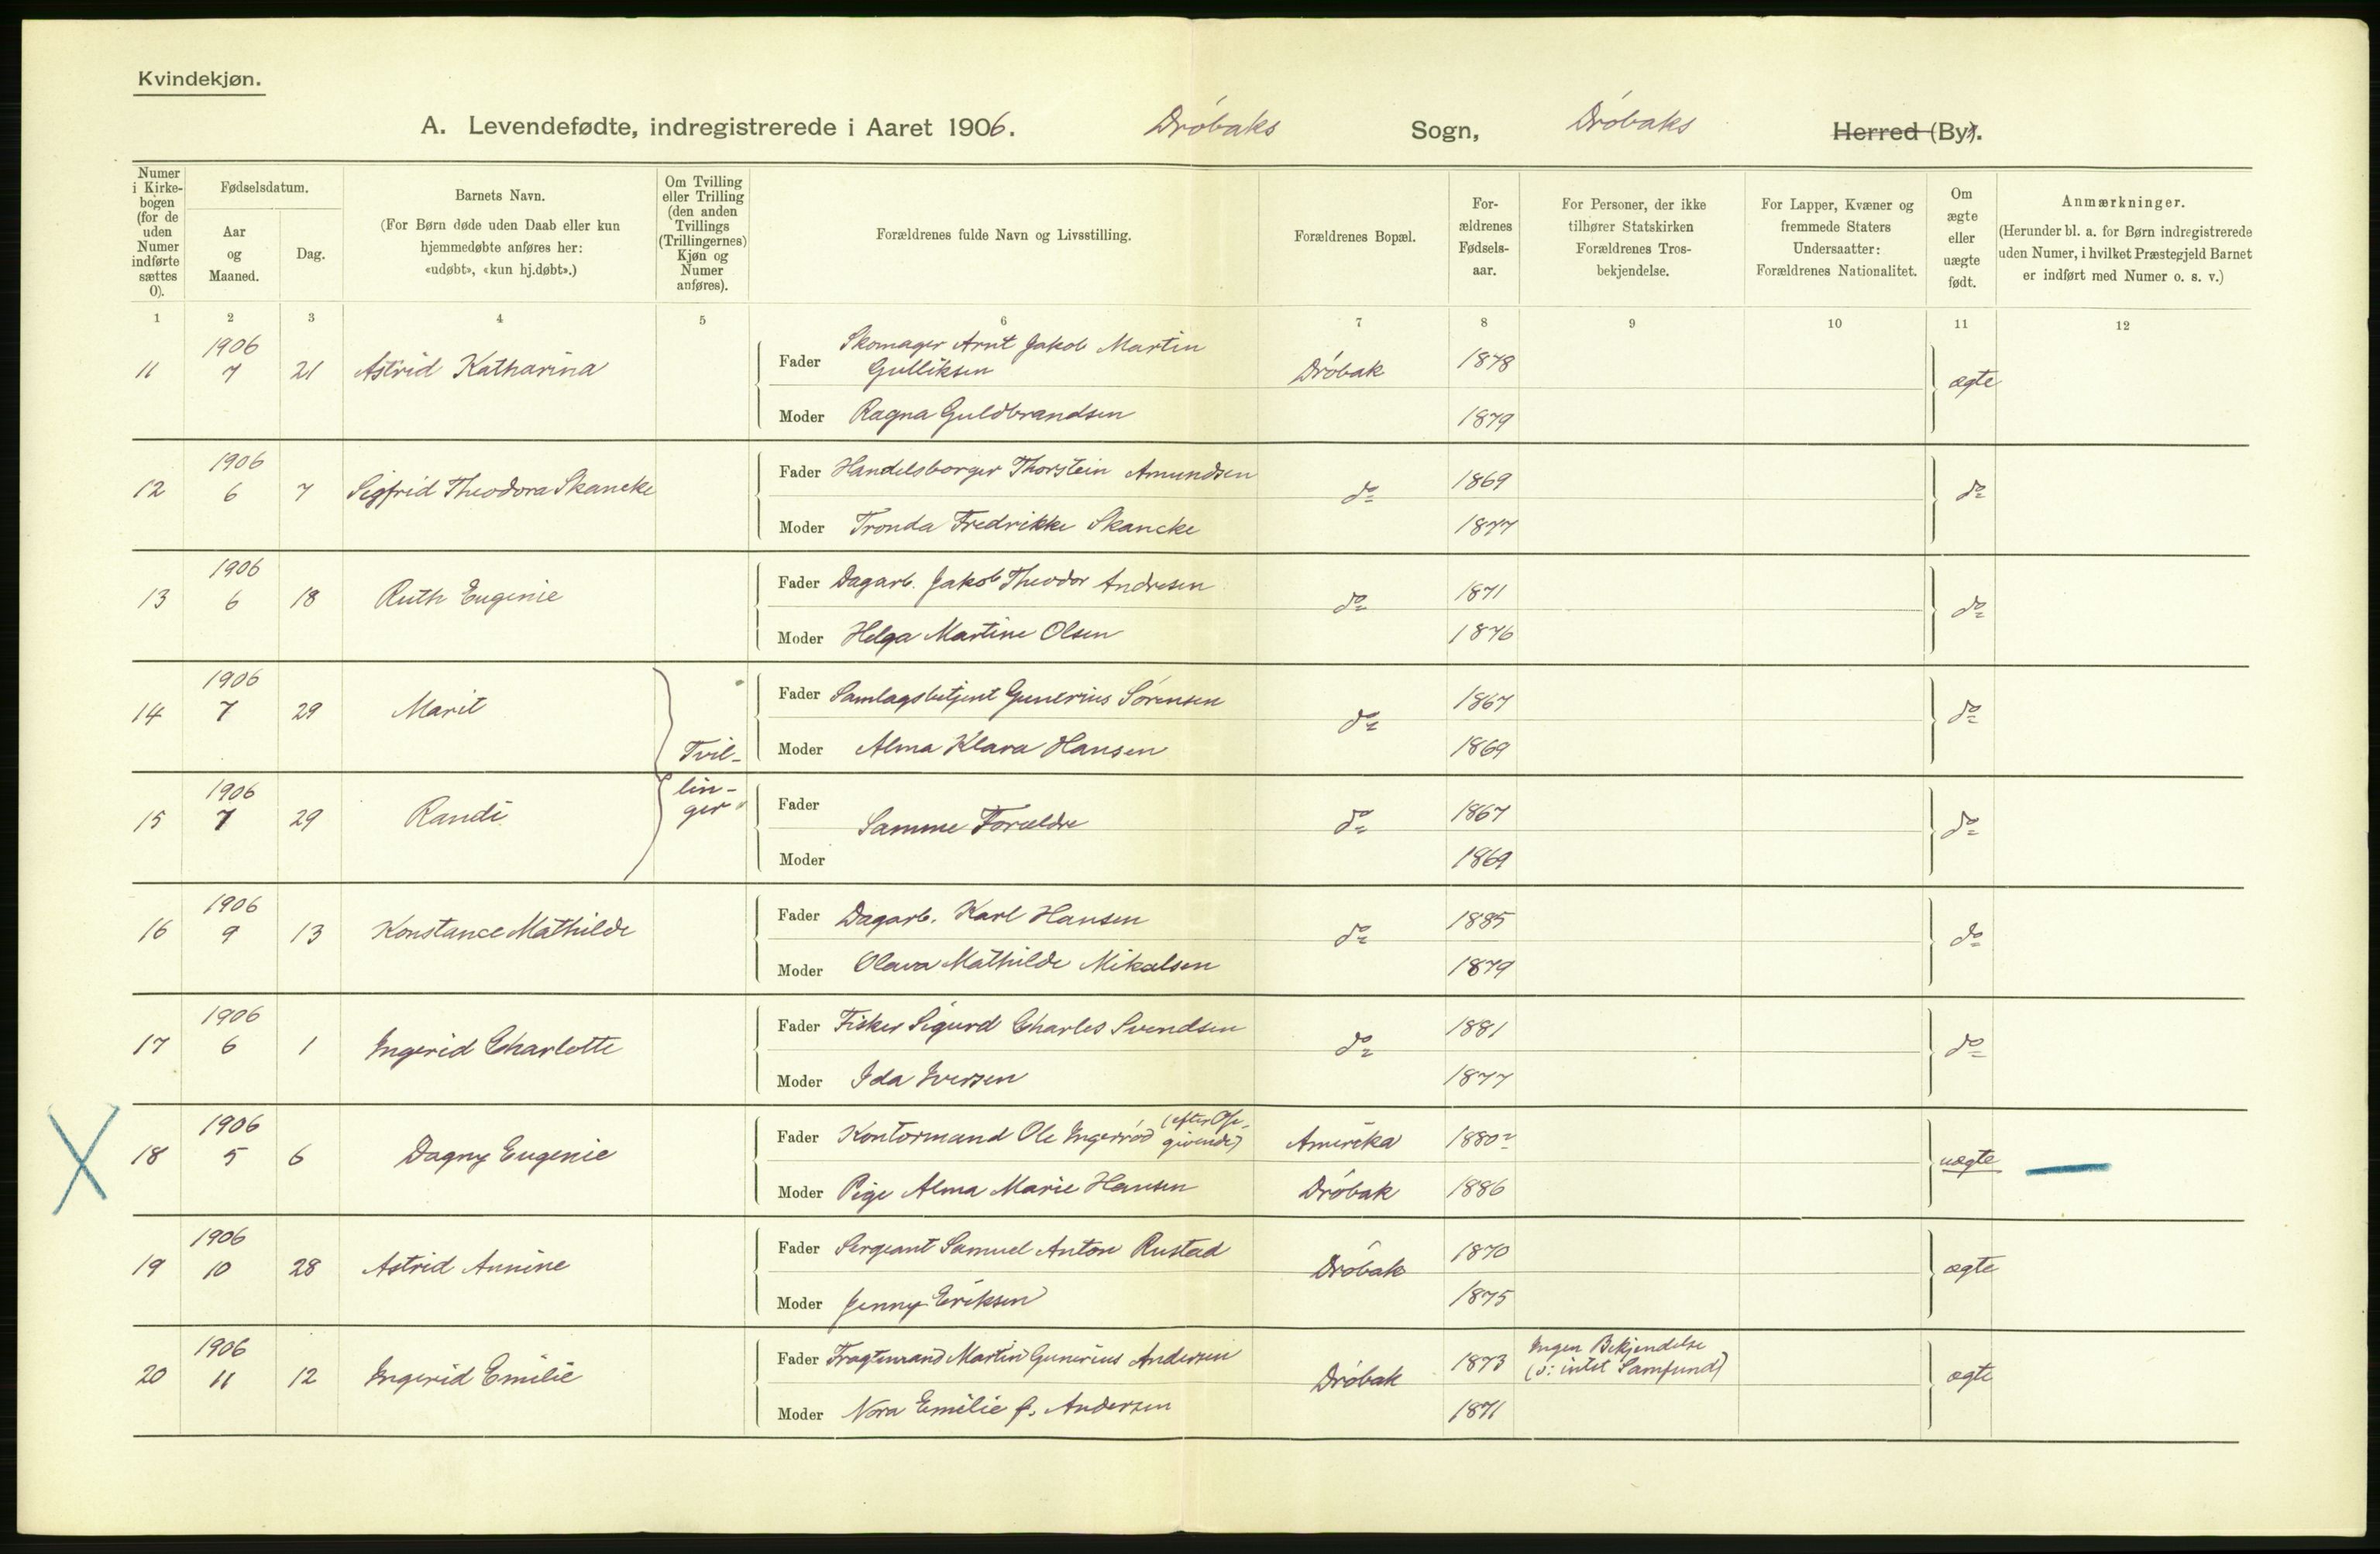 Kvindekjøn.
A. Levendefødte, indregistrerede i Aaret 1906. Drøbaks Sogn, Drøbaks Herred (By).
Numer i Kirkebogen (for de uden Numer indførte sættes 0).
Fødselsdatum.
Aar og Maaned.
Dag.
Barnets Navn.
(For Børn døde uden Daab eller kun hjemmedøbte anføres her: «udøbt», «kun hj.døbt».)
Om Tvilling eller Trilling (den anden Tvillings (Trillingernes) Kjøn og Numer anføres).
Forældrenes fulde Navn og Livsstilling.
Forældrenes Bopæl.
For-ældrenes Fødsels-aar.
For Personer, der ikke tilhører Statskirken Forældrenes Tros-bekjendelse.
For Lapper, Kvæner og fremmede Staters Undersaatter: Forældrenes Nationalitet.
Om ægte eller uægte født.
Anmærkninger.
(Herunder bl. a. for Børn indregistrerede uden Numer, i hvilket Præstegjeld Barnet er indført med Numer o. s. v.)
1 2 3 4 5 6 7 8 9 10 11 12
11 1906 7 21 Astrid Katharina Fader Skomager Arnt Jakob Martin Gulliksen Drøbak 1878 ægte
Moder Ragna Guldbrandsen 1879
12 1906 6 7 Sigfrid Theodora Skancke Fader Handelsborger Thorstein Amundsen do 1869 do
Moder Tronda Fredrikke Skancke 1877
13 1906 6 18 Ruth Eugenie Fader Dagarb. Jakob Theodor Andresen do 1871 do
Moder Helga Martine Olsen 1876
14 1906 7 29 Marit Tvil- Fader Samlagsbetjent Gunerius Sørensen do 1867 do
Moder Alma Klara Hansen 1869
15 1906 7 29 Randi lin-ger Fader Samme Forældre do 1867 do
Moder 1869
16 1906 9 13 Konstance Mathilde Fader Dagarb. Karl Hansen do 1885 do
Moder Olava Mathilde Mikalsen 1879
17 1906 6 1 Ingerid Charlotte Fader Fisker Sigurd Charles Svendsen do 1881 do
Moder Ida Iversen 1877
18 1906 5 6 Dagny Eugenie Fader Kontormand Ole Ingerød (efter Opgivende) Amerika 1880 uægte
Moder Pige Alma Marie Hansen Drøbak 1886
19 1906 10 28 Astrid Annine Fader Sergeant Samuel Anton Rustad Drøbak 1870 ægte
Moder Jenny Eriksen 1875
20 1906 11 12 Ingerid Emilie Fader Fragtemand Martin Gunerius Andersen Drøbak 1873 Ingen Bekjendelse (ɔ: intet Samfund) ægte
Moder Nora Emilie f. Andersen 1871